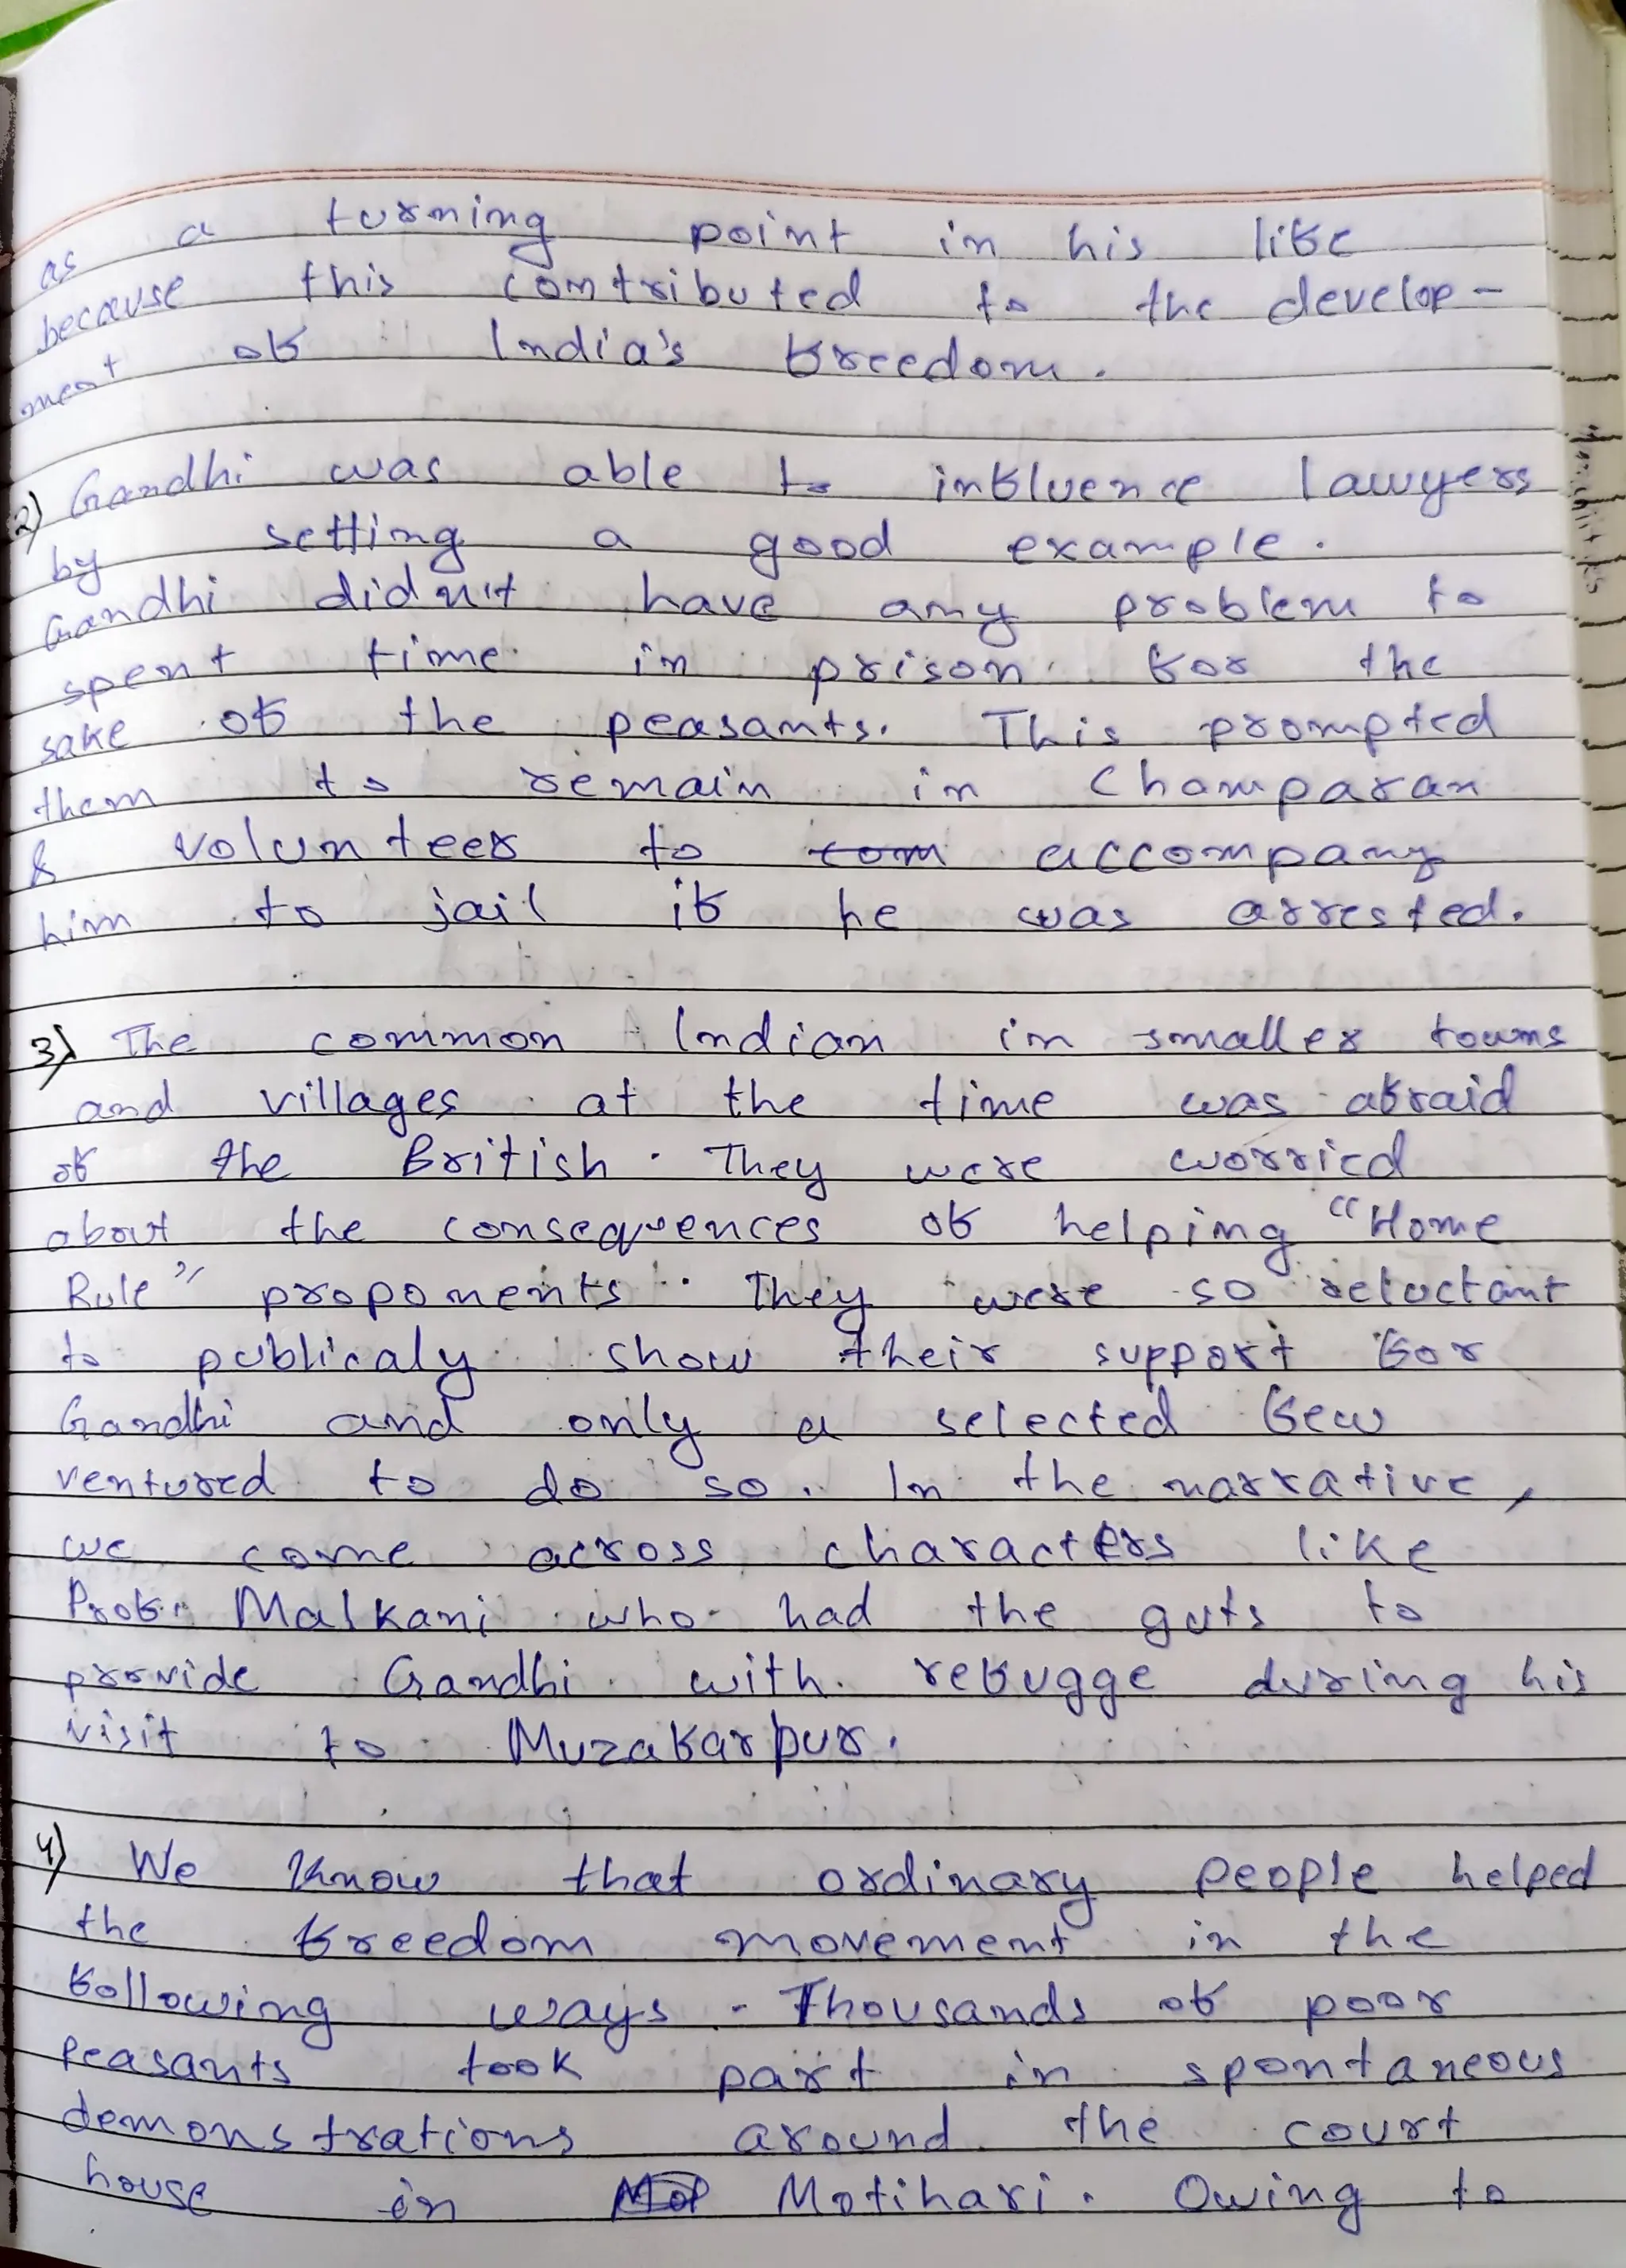 as a turning point in his life
because this contributed to the develop-
ment of India's freedom.
2) Gandhi was able to influence lawyers
by setting a good example.
Gandhi didn't have any problem to
spent time in prison for the
sake of the peasants. This prompted
them to remain in Champaran
& volunteer to com accompany
him to jail if he was arrested.
3) The common Indian in smaller towns
and villages at the time was afraid
of the British. They were worried
about the consequences of helping "Home
Rule" proponents. They were so reluctant
to publicaly show their support for
Gandhi and only a selected few
ventured to do so. In the narrative,
we come across characters like
Prof. Malkani who had the guts to
provide Gandhi with refugge during his
visit to Muzafarpur.
4) We know that ordinary people helped
the freedom movement in the
following ways. Thousands of poor
peasants took part in spontaneous
demonstrations around the court
house in Motihari. Owing to